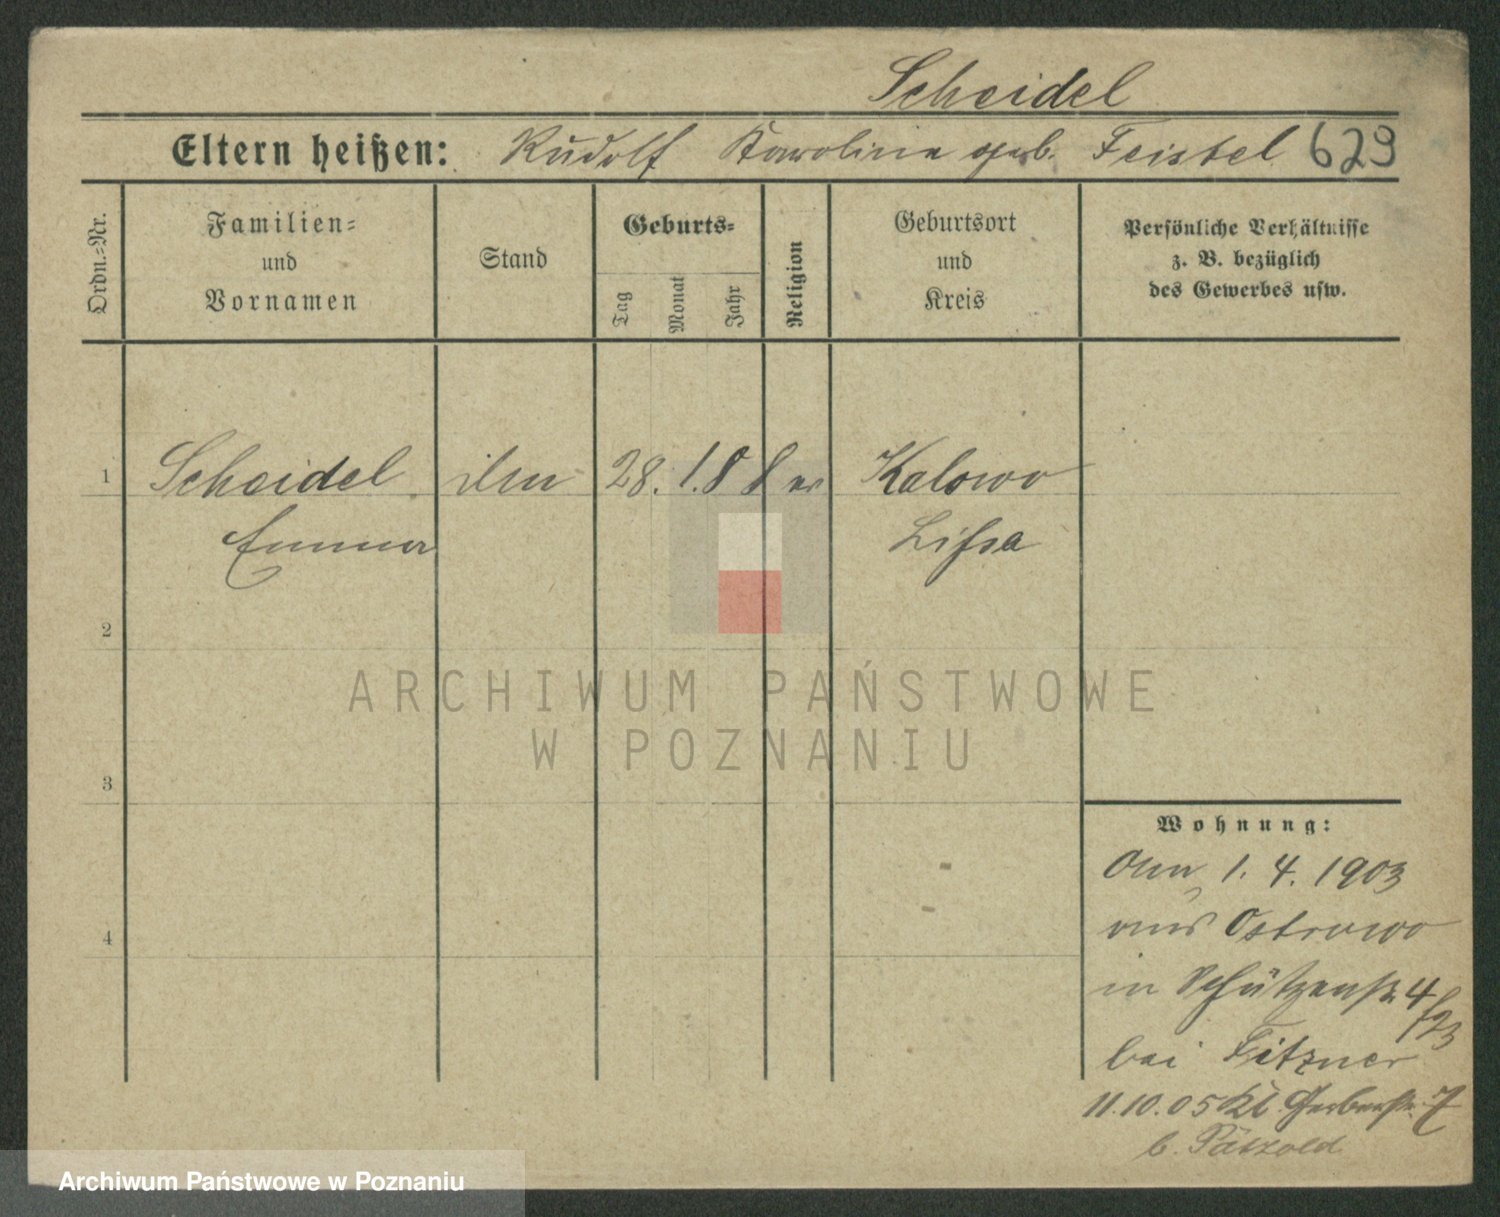 Scheidel
Eltern heißen: Rudolf Karoline geb. Feistel 629
Ordn.=Nr.
Familien=
und
Vornamen
Stand
Geburts=
Tag
Monat
Jahr
Religion
Geburtsort
und
Kreis
Persönliche Verhältnisse
z. B. bezüglich
des Gewerbes usw.
1 Scheidel 28. 1. 88 ev Kalowo
Emma Lissa
2
ARCHIWUM PAŃSTWOWE
W POZNANIU
3
Wohnung:
1. 4. 1903
4 aus Ostrowo
in Schützenstr 4
bei Fitzner
11.10.05 Kl. Gerberstr. 7
b. Pätzold
Archiwum Państwowe w Poznaniu